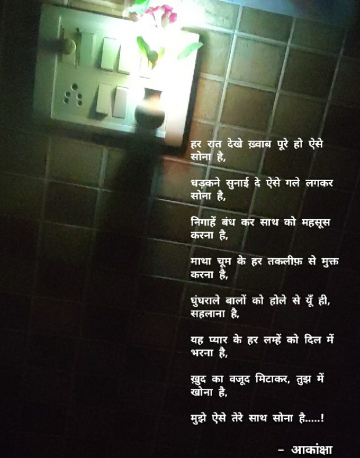 हर रात देखे ख़्वाब पूरे हो ऐसे
सोना है,
धड़कने सुनाई दे ऐसे गले लगकर
सोना है,
निगाहें बंध कर साथ को महसूस
करना है,
माथा चूम के हर तकलीफ़ से मुक्त
करना है,
घुंघराले बालों को होले से यूँ ही,
सहलाना है,
यह प्यार के हर लम्हें को दिल में
भरना है,
ख़ुद का वजूद मिटाकर, तुझ में
खोना है,
मुझे ऐसे तेरे साथ सोना है.....!
– आकांक्षा